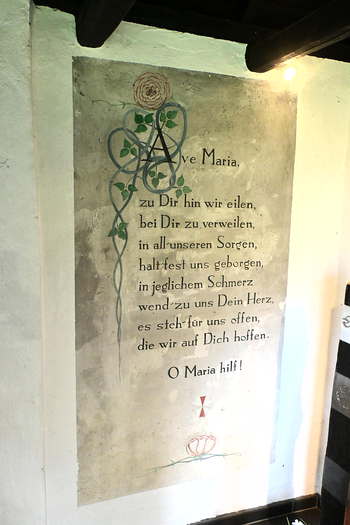 Ave Maria,
zu Dir hin wir eilen,
bei Dir zu verweilen,
in all unseren Sorgen,
halt fest uns geborgen,
in jeglichem Schmerz
wend zu uns Dein Herz,
es steh für uns offen,
die wir auf Dich hoffen.
O Maria hilf!